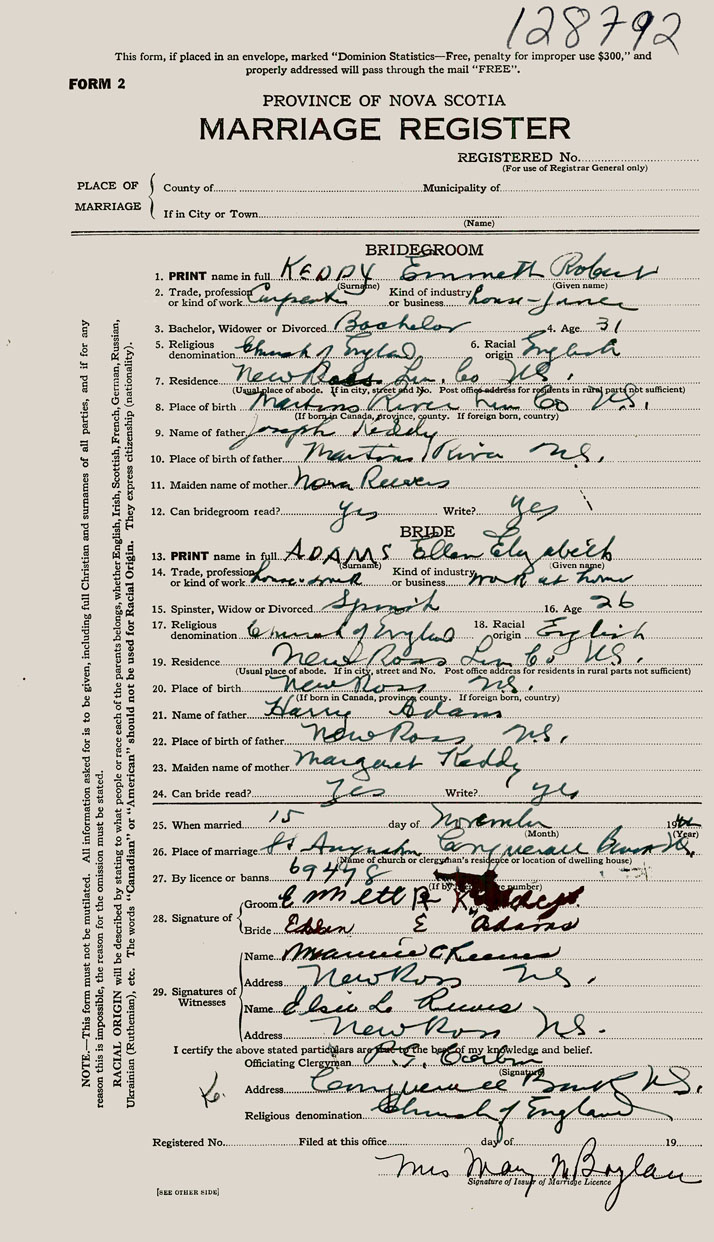 128792
This form, if placed in an envelope, marked "Dominion Statistics—Free, penalty for improper use $300," and
properly addressed will pass through the mail "FREE".
FORM 2
PROVINCE OF NOVA SCOTIA
MARRIAGE REGISTER
REGISTERED No.
(For use of Registrar General only)
PLACE OF MARRIAGE
County of Municipality of
If in City or Town
(Name)
BRIDEGROOM
1. PRINT name in full KEDDY Emmett Robert
(Surname) (Given name)
2. Trade, profession or kind of work Carpenter Kind of industry or business house-
3. Bachelor, Widower or Divorced Bachelor 4. Age 31
5. Religious denomination Church of England 6. Racial origin English
7. Residence New Ross Lun. Co N.S.
(Usual place of abode. If in city, street and No. Post office address for residents in rural parts not sufficient)
8. Place of birth Martins River Lun Co N.S.
(If born in Canada, province, county. If foreign born, country)
9. Name of father Joseph Keddy
10. Place of birth of father Martins River N.S.
11. Maiden name of mother Nora Reeves
12. Can bridegroom read? Yes Write? Yes
BRIDE
13. PRINT name in full ADAMS Ellen Elizabeth
(Surname) (Given name)
14. Trade, profession or kind of work house-work Kind of industry or business work at home
15. Spinster, Widow or Divorced 16. Age 26
17. Religious denomination Church of England 18. Racial origin English
19. Residence New Ross Lun Co N.S.
(Usual place of abode. If in city, street and No. Post office address for residents in rural parts not sufficient)
20. Place of birth New Ross N.S.
(If born in Canada, province, county. If foreign born, country)
21. Name of father Harry Adams
22. Place of birth of father New Ross N.S.
23. Maiden name of mother Margaret Keddy
24. Can bride read? Yes Write? Yes
25. When married 15 day of November 19
(Month) (Year)
26. Place of marriage St Augustine Conquerall Bank N.S.
(Name of church or clergyman's residence or location of dwelling house)
27. By licence or banns 69448
(If by number)
28. Signature of
Groom Emmett R
Bride Ellen E Adams
29. Signatures of Witnesses
Name Maurice C Reeves
Address New Ross N.S.
Name Elsie L. Reeves
Address New Ross N.S.
I certify the above stated particulars are true to the best of my knowledge and belief.
Officiating Clergyman
(Signature)
Address Conquerall Bank N.S.
Religious denomination Church of England
Registered No. Filed at this office day of 19
Mrs Mary N Boylan
Signature of Issuer of Marriage Licence
[SEE OTHER SIDE]
NOTE.—This form must not be mutilated. All information asked for is to be given, including full Christian and surnames of all parties, and if for any
reason this is impossible, the reason for the omission must be stated.
RACIAL ORIGIN will be described by stating to what people or race each of the parents belongs, whether English, Irish, Scottish, French, German, Russian,
Ukrainian (Ruthenian), etc. The words "Canadian" or "American" should not be used for Racial Origin. They express citizenship (nationality).